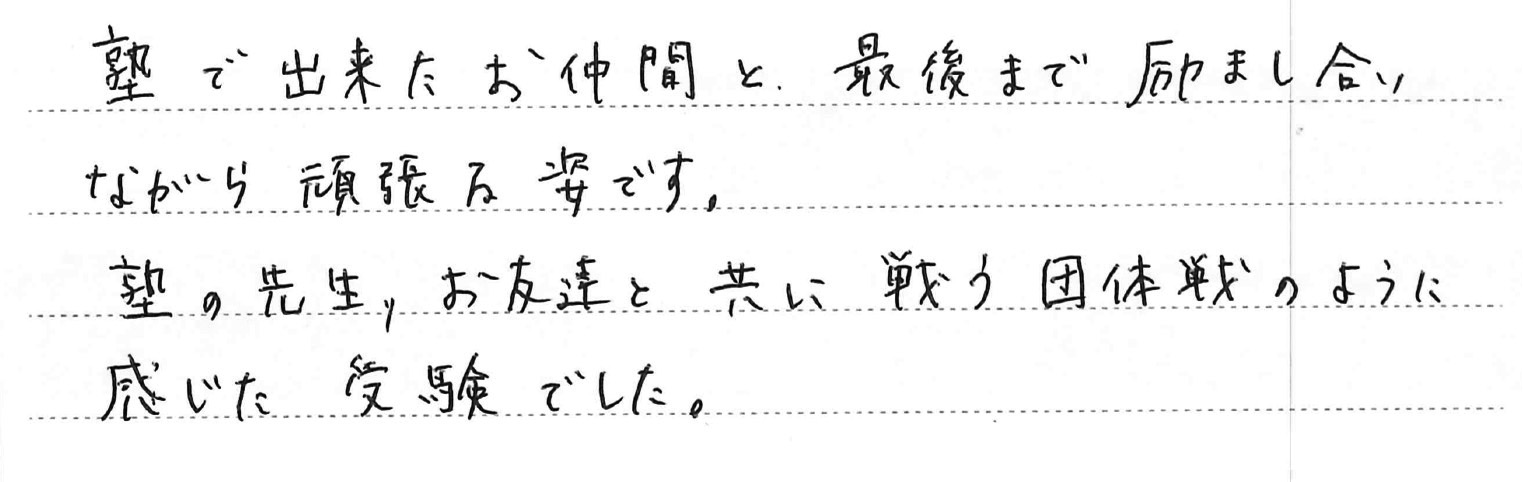 塾で出来たお仲間と、最後まで励まし合い
ながら頑張る姿です。
塾の先生、お友達と共に戦う団体戦のように
感じた受験でした。